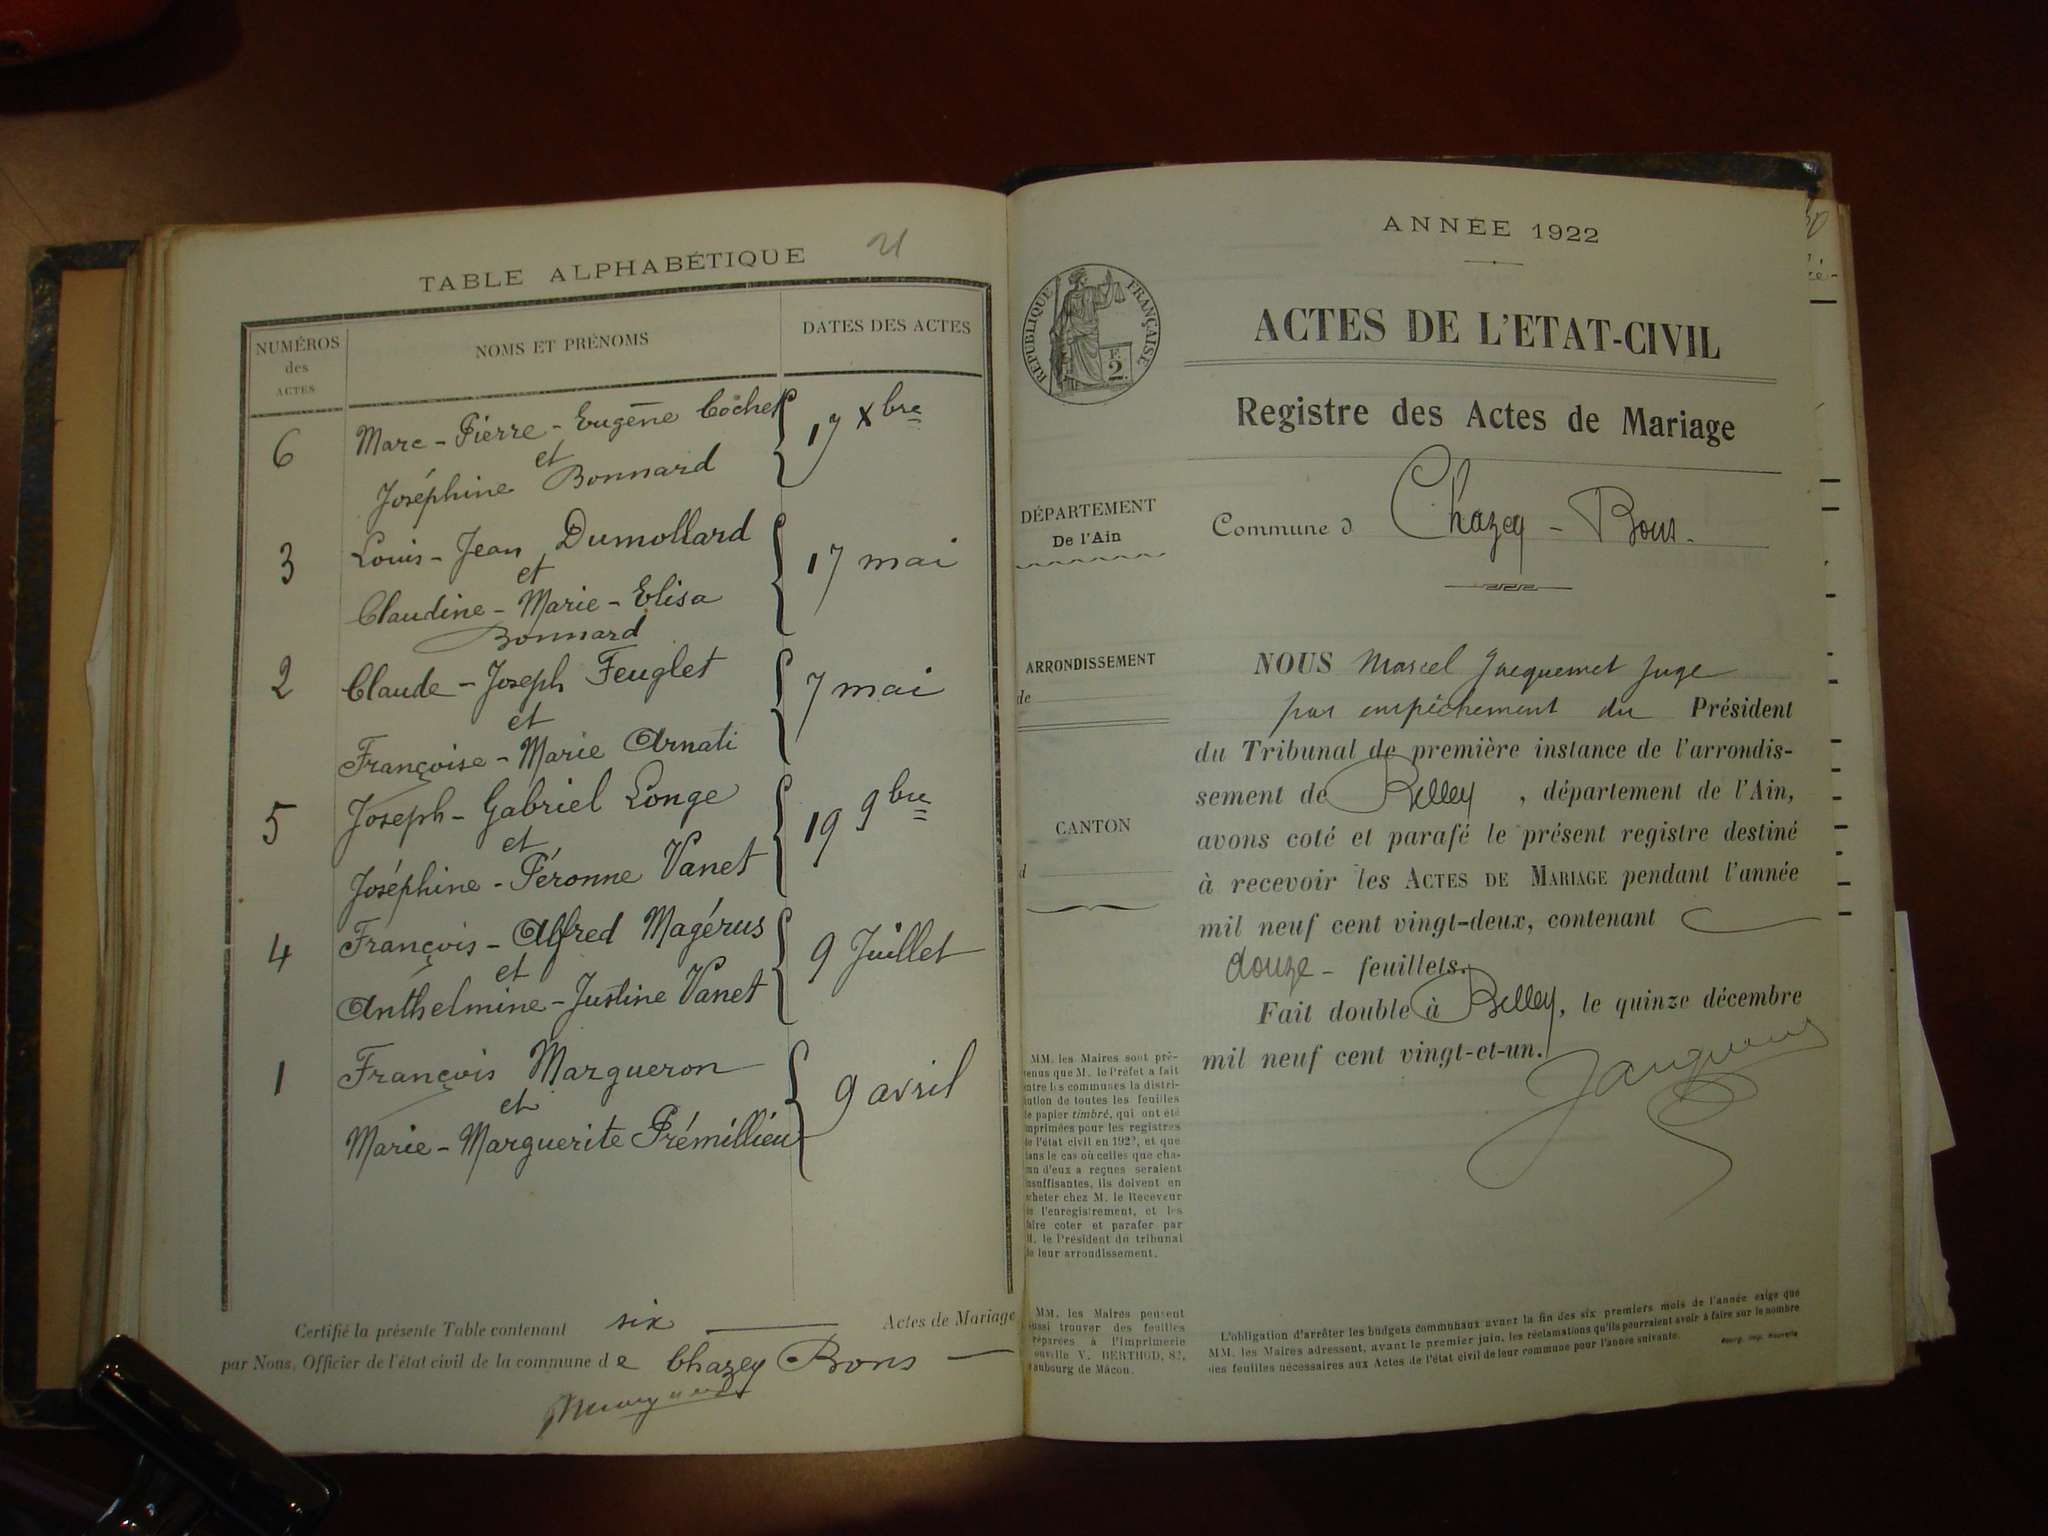 TABLE ALPHABÉTIQUE
21
NUMÉROS
des
ACTES
NOMS ET PRÉNOMS
DATES DES ACTES
6
Marc-Pierre-Eugène Cochet
et
Joséphine Bonnard
17 Xbre
3
Louis-Jean Dumollard
et
Claudine-Marie-Elisa
Bonnard
17 mai
2
Claude-Joseph Feuglet
et
Françoise-Marie Arnati
7 mai
5
Joseph-Gabriel Longe
et
Joséphine-Péronne Vanet
19 9bre
4
François-Alfred Magérus
et
Anthelmine-Justine Vanet
9 Juillet
1
François Margueron
et
Marie-Marguerite Prémillieu
9 avril
Certifié la présente Table contenant six Actes de Mariage
par Nous, Officier de l'état civil de la commune de Chazey Bons
ANNÉE 1922
RÉPUBLIQUE FRANÇAISE
F.
2
ACTES DE L'ETAT-CIVIL
Registre des Actes de Mariage
DÉPARTEMENT
De l'Ain
Commune d Chazey-Bons.
ARRONDISSEMENT
de
CANTON
d
NOUS Marcel Jacquemet Juge
par empêchement du Président
du Tribunal de première instance de l'arrondis-
sement de Belley, département de l'Ain,
avons coté et parafé le présent registre destiné
à recevoir les ACTES DE MARIAGE pendant l'année
mil neuf cent vingt-deux, contenant
douze - feuillets.
Fait double à Belley, le quinze décembre
mil neuf cent vingt-et-un.
MM. les Maires sont pré-
venus que M. le Préfet a fait
entre les communes la distri-
bution de toutes les feuilles
de papier timbré, qui ont été
imprimées pour les registres
de l'état civil en 1922, et que
dans le cas où celles que cha-
cun d'eux a reçues seraient
insuffisantes, ils doivent en
acheter chez M. le Receveur
de l'enregistrement, et les
faire coter et parafer par
M. le Président du tribunal
de leur arrondissement.
MM. les Maires peuvent
aussi trouver des feuilles
préparées à l'Imprimerie
nouvelle V. BERTHOD, 82,
faubourg de Mâcon.
L'obligation d'arrêter les budgets communaux avant la fin des six premiers mois de l'année exige que
MM. les Maires adressent, avant le premier juin, les réclamations qu'ils pourraient avoir à faire sur le nombre
des feuilles nécessaires aux Actes de l'état civil de leur commune pour l'année suivante.
Bourg, imp. nouvelle